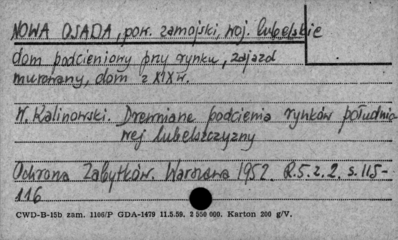 NOWA OSADA, pow. zamojski, woj. lubelskie
dom podcieniowy przy rynku, zajazd
murowany, dom z XIX w.
W. Kalinowski. Drewniane podcienia rynków południo
wej lubelszczyzny
Ochrona Zabytków. Warszawa 1952. R.5. z. 2. s. 115-
116
CWD-B-15b zam. 1106/P GDA-1479 11.5.59. 2 550 000. Karton 200 g/V.